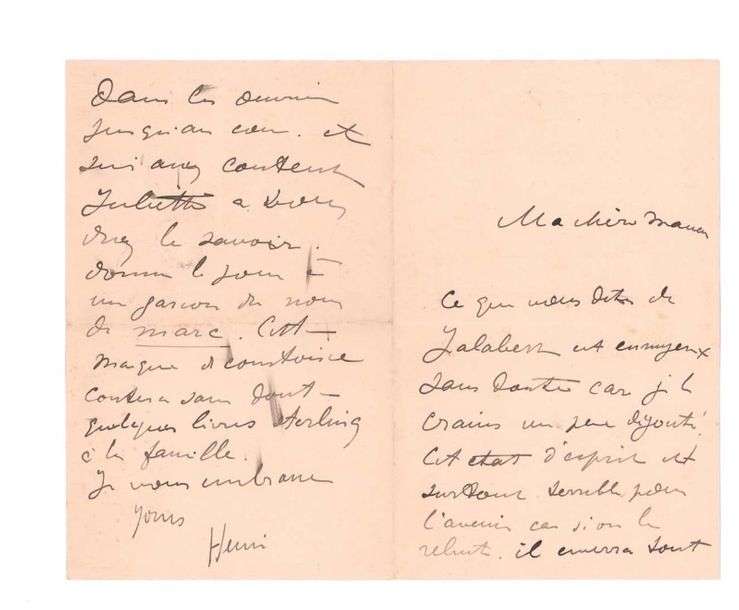 Ma chère Maman
Ce que vous dites de
Jalabert est ennuyeux
sans doute car je le
crains un peu dégouté.
Cet état d'esprit est
surtout terrible pour
l'avenir car si on le
rebute. il enverra tout
Dans les ouvriers
jusqu'au cou. et
suis assez content
Juliette a vous
devez le savoir.
donné le jour à
un garcon du nom
de marc. Cette
marque de courtoisie
coutera sans doute
quelques livres sterling
à la famille.
Je vous embrasse
yours
Henri